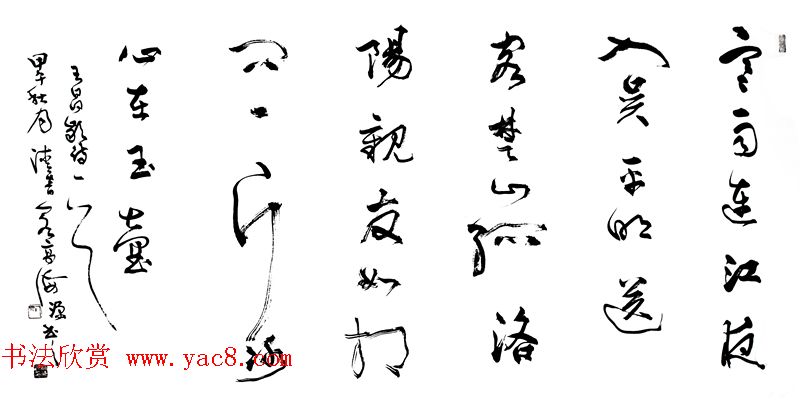 寒雨連江夜
入吴平明送
客楚山孤洛
陽親友如相
问一片冰
心在玉壺
王昌齡诗一首
甲午秋月 海源书
书法欣赏 www.yac8.com